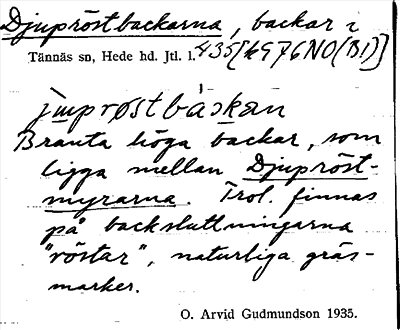 Djupröstbackarna, backar i
Tännäs sn, Hede hd. Jtl. l. 435 [k976NO(B1)]
jʉprøstbaskan
Branta höga backar, som
ligga mellan Djupröst-
myrarna. Trol. finnas
på backsluttningarna
"röstar", naturliga gräs-
marker.
O. Arvid Gudmundson 1935.